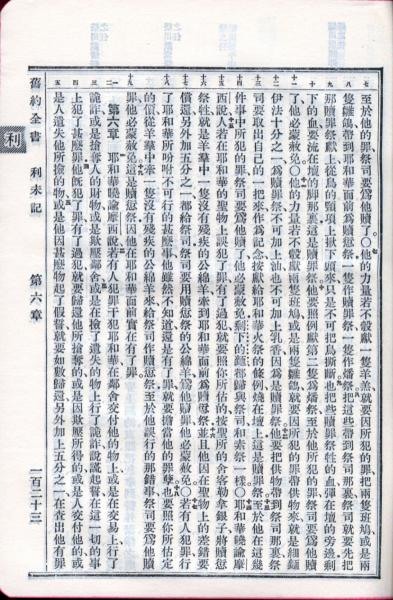 至於他的罪祭司要爲他贖了〇他的力量若不彀獻一隻羊羔就要因所犯的罪把兩隻班鳩或是兩
隻雛鴿帶到耶和華面前爲贖愆祭一隻作贖罪祭一隻作燔祭把這些帶到祭司那裏祭司就要先把
那贖罪祭獻上從鳥的頸項上揪下頭來只是不可把鳥撕斷也把些贖罪祭牲的血彈在壇的旁邊剩
下的血要流在壇的脚那裏這是贖罪祭他要照例獻第二隻爲燔祭至於他所犯的罪祭司要爲他贖
了他必蒙赦免〇他的力量若不彀獻兩隻班鳩或是兩隻雛鴿就要因所犯的罪帶供物來就是細麵
伊法十分之一爲贖罪祭不可加上油也不可加上乳香因爲是贖罪祭他要把供物帶到祭司那裏祭
司要取出自己的一把來作爲記念按獻給耶和華火祭的條例燒在壇上這是贖罪祭至於他在這幾
件事中所犯的罪祭司要爲他贖了他必蒙赦免剩下的麵都歸與祭司和素祭一樣〇耶和華曉諭摩
西說人若在耶和華的聖物上誤犯了罪有了過犯就要照你所估的按聖所的舍客勒拿銀子將贖愆
祭牲就是羊羣中一隻沒有殘疾的公綿羊牽到耶和華面前爲贖愆祭並且他因在聖物上的差錯要
償還另外加五分之一都給祭司祭司要用贖愆祭的公綿羊爲他贖罪他必蒙赦免〇若有人犯罪行
了耶和華所吩咐不可行的甚麼事他雖然不知道還是有了罪就要擔當他的罪孽也要照你所估定
的價從羊羣中牽一隻沒有殘疾的公綿羊來給祭司作贖愆祭至於他誤行的那錯事祭司要爲他贖
罪他必蒙赦免這是贖愆祭因他在耶和華面前實在有了罪
第六章 耶和華曉諭摩西說若有人犯罪干犯耶和華在鄰舍交付他的物上或是在交易上行了
詭詐或是搶奪人的財物或是欺壓鄰舍或是在撿了遺失的物上行了詭詐說謊起誓在這一切的事
上犯了甚麼罪他旣犯了罪有了過犯就要歸還他所搶奪的或是因欺壓所得的或是人交付他的或
是人遺失他所撿的物或是他因甚麼物起了假誓就要如數歸還另外加上五分之一在查出他有罪
舊約全書 利未記 第六章 一百二十三
利